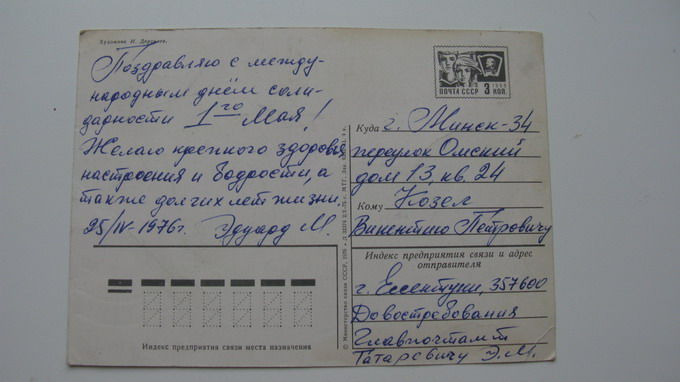 Художник И. Дергилев.
Поздравляю с между-
народным днём соли-
дарности 1го Мая!
Желаю крепкого здоровья,
настроения и бодрости, а
также долгих лет жизни.
25/IV-1976г. Эдуард М.
ПОЧТА СССР 3 КОП.
1966
Куда г. Минск-34
переулок Омский
дом 13, кв. 24
Кому Козел
Викентию Петровичу
Индекс предприятия связи и адрес
отправителя
г. Ессентуки, 357600
До востребования
Главпочтамт
Татаревичу Э.М.
Индекс предприятия связи места назначения
© Министерство связи СССР, 1975